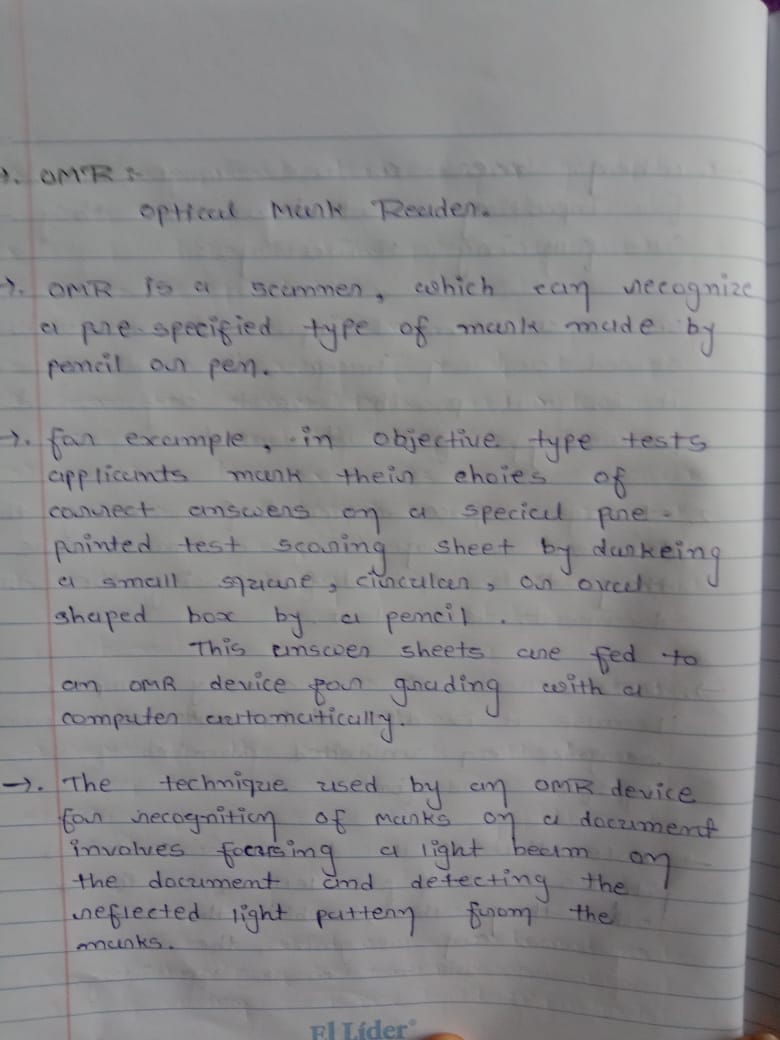 →. OMR :-
Optical Mark Reader.
→. OMR is a scanner, which can recognize
a pre-specified type of mark made by
pencil or pen.
→. for example, in objective type tests
applicants mark their choies of
correct answers on a special pre-
printed test scoring sheet by darkeing
a small square, circular, or oval
shaped box by a pencil.
This answer sheets are fed to
an OMR device for grading with a
computer automatically.
→. The technique used by an OMR device
for recognition of marks on a document
involves focusing a light beam on
the document and detecting the
reflected light pattern from the
marks.
El Líder